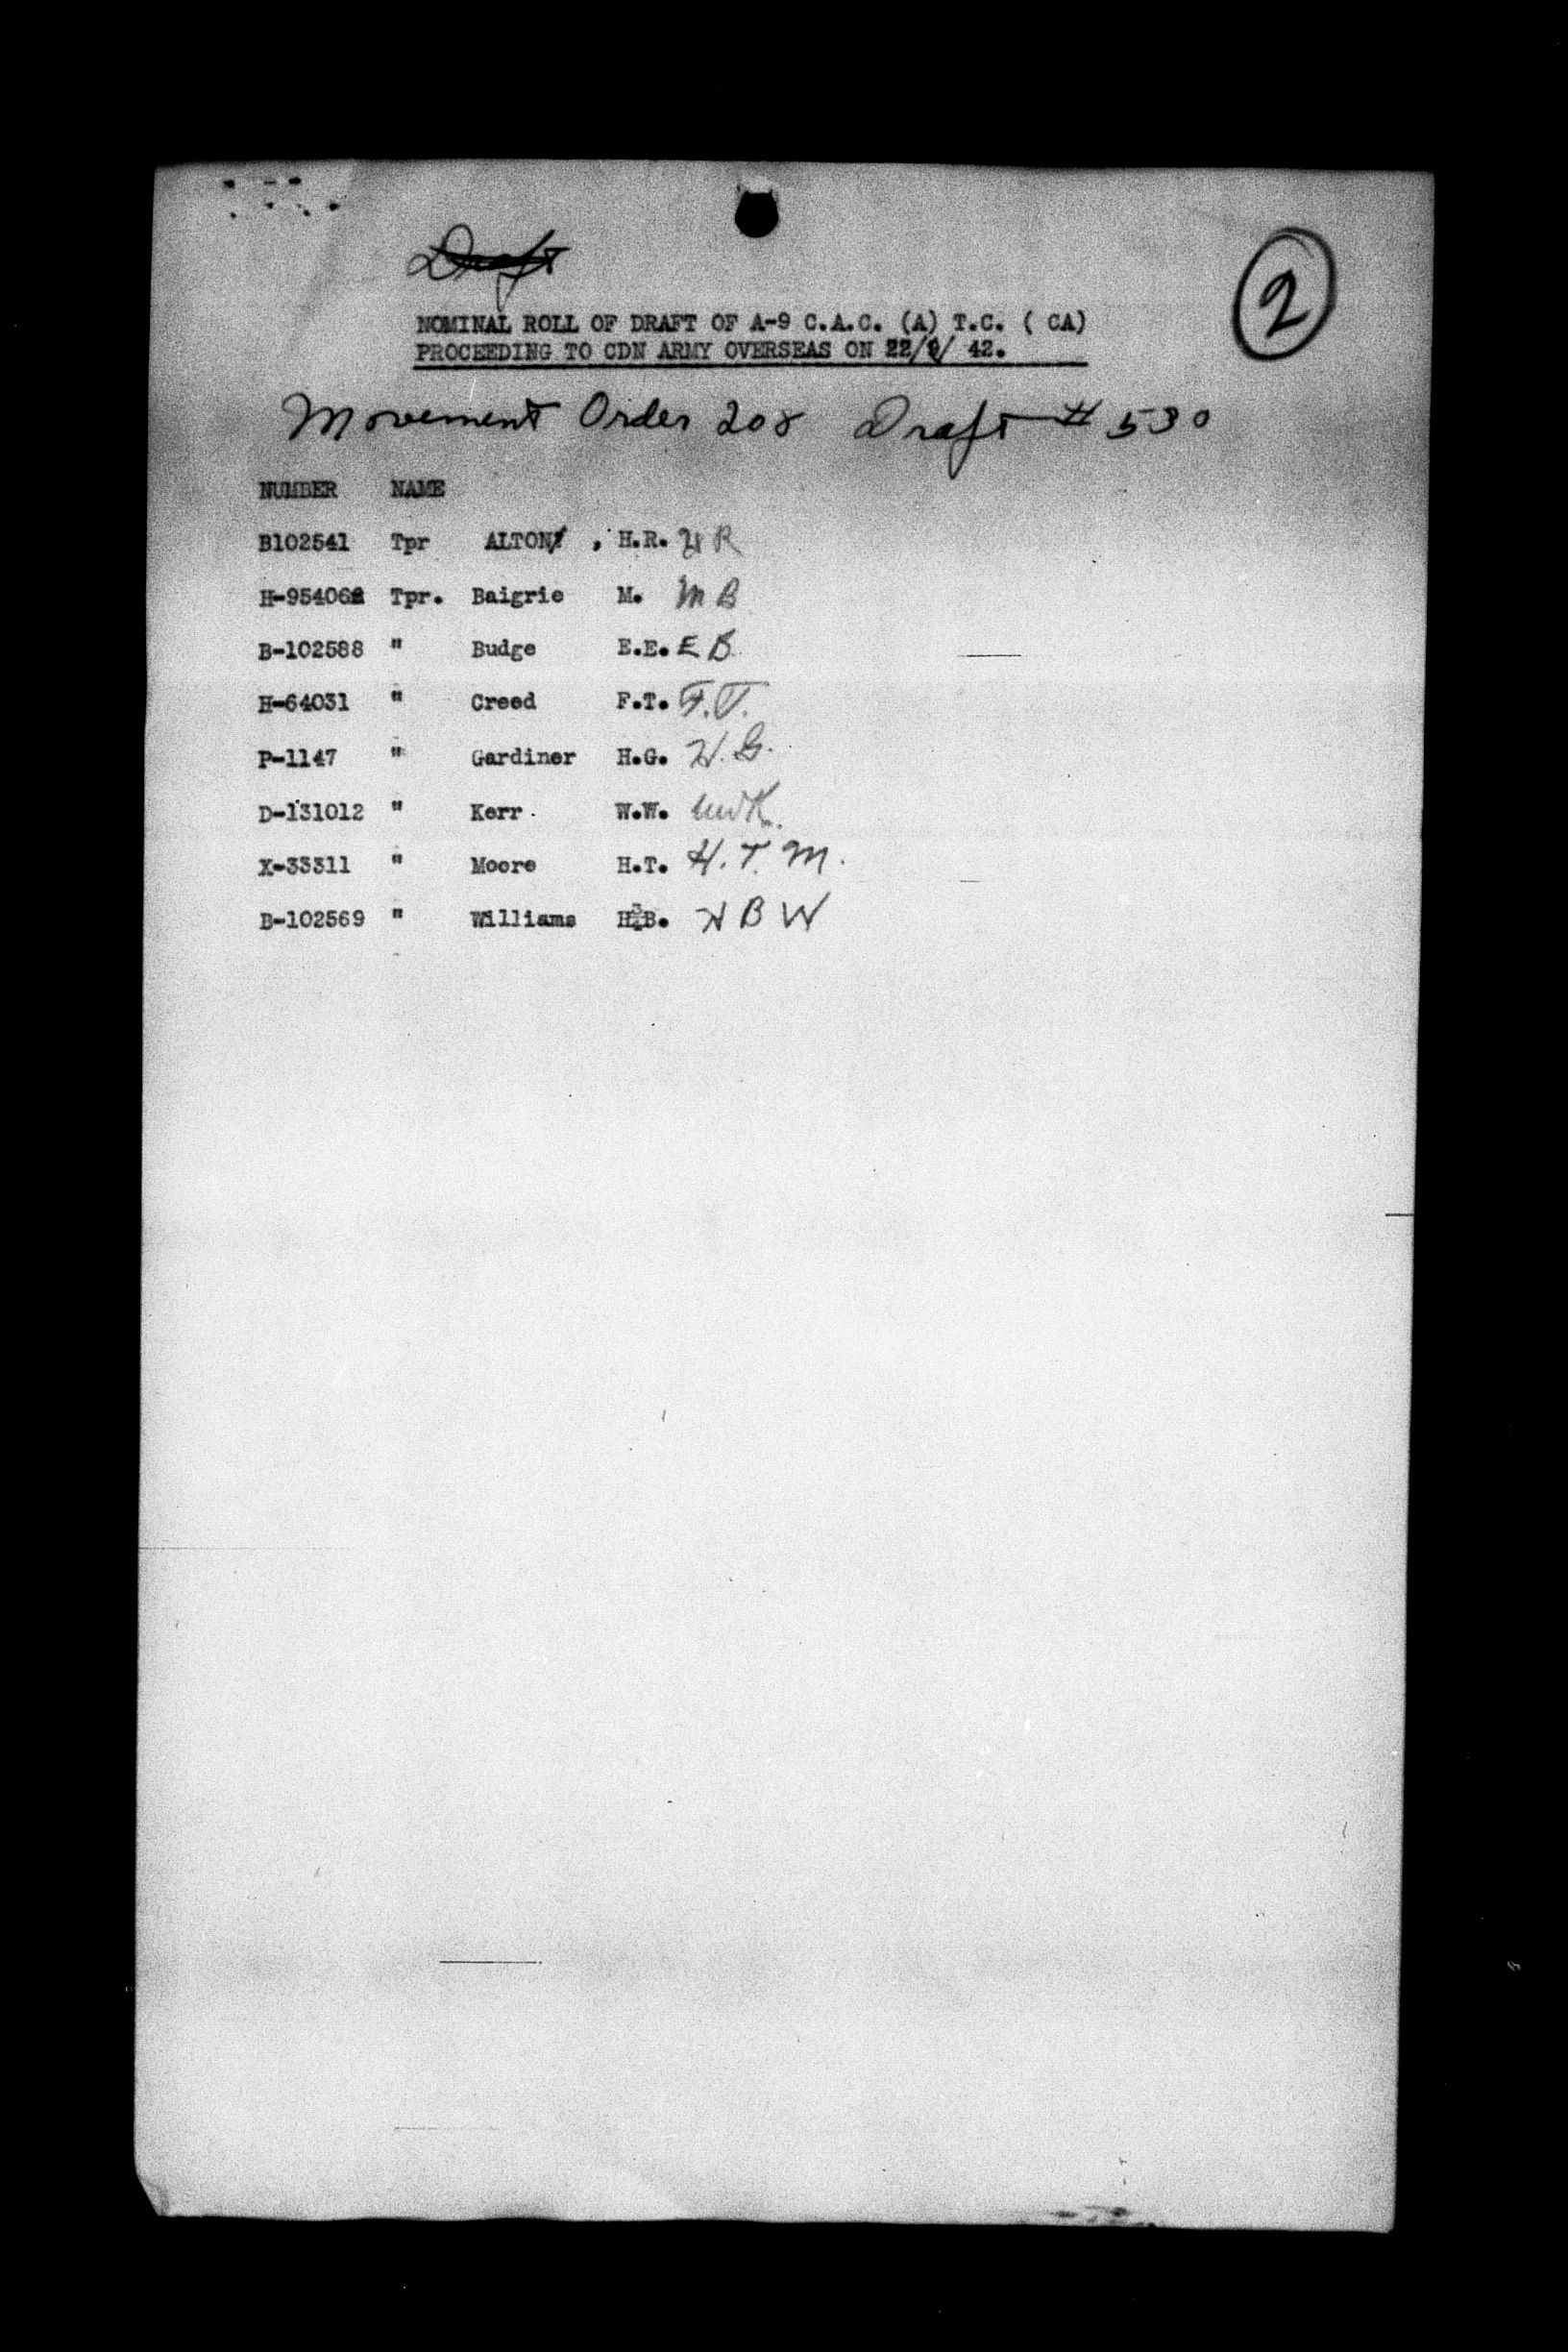 Draft
2
NOMINAL ROLL OF DRAFT OF A-9 C.A.C. (A) T.C. ( CA)
PROCEEDING TO CDN ARMY OVERSEAS ON 22/8/ 42.
Movement Order 208 Draft # 530
NUMBER NAME
B102541 Tpr ALTON , H.R. HR
H-954062 Tpr. Baigrie M. MB
B-102588 " Budge E.E. EB
H-64031 " Creed F.T. F.T.
P-1147 " Gardiner H.G. H.G.
D-131012 " Kerr W.W. WWK.
X-33311 " Moore H.T. H.T.M.
B-102569 " Williams H.B. HBW